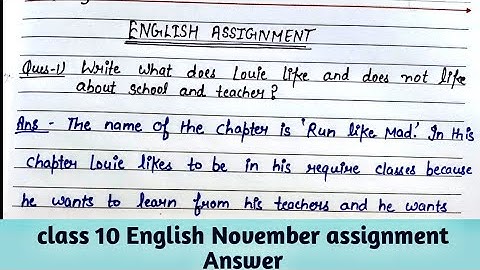 ENGLISH ASSIGNMENT
Ques-1) Write what does Louie like and does not like
about school and teacher?
Ans - The name of the chapter is 'Run like Mad.' In this
chapter Louie likes to be in his require classes because
he wants to learn from his teachers and he wants
class 10 English November assignment
Answer